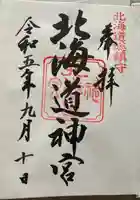 北海道総鎮守
奉拝
北海道神宮
令和五年九月十日